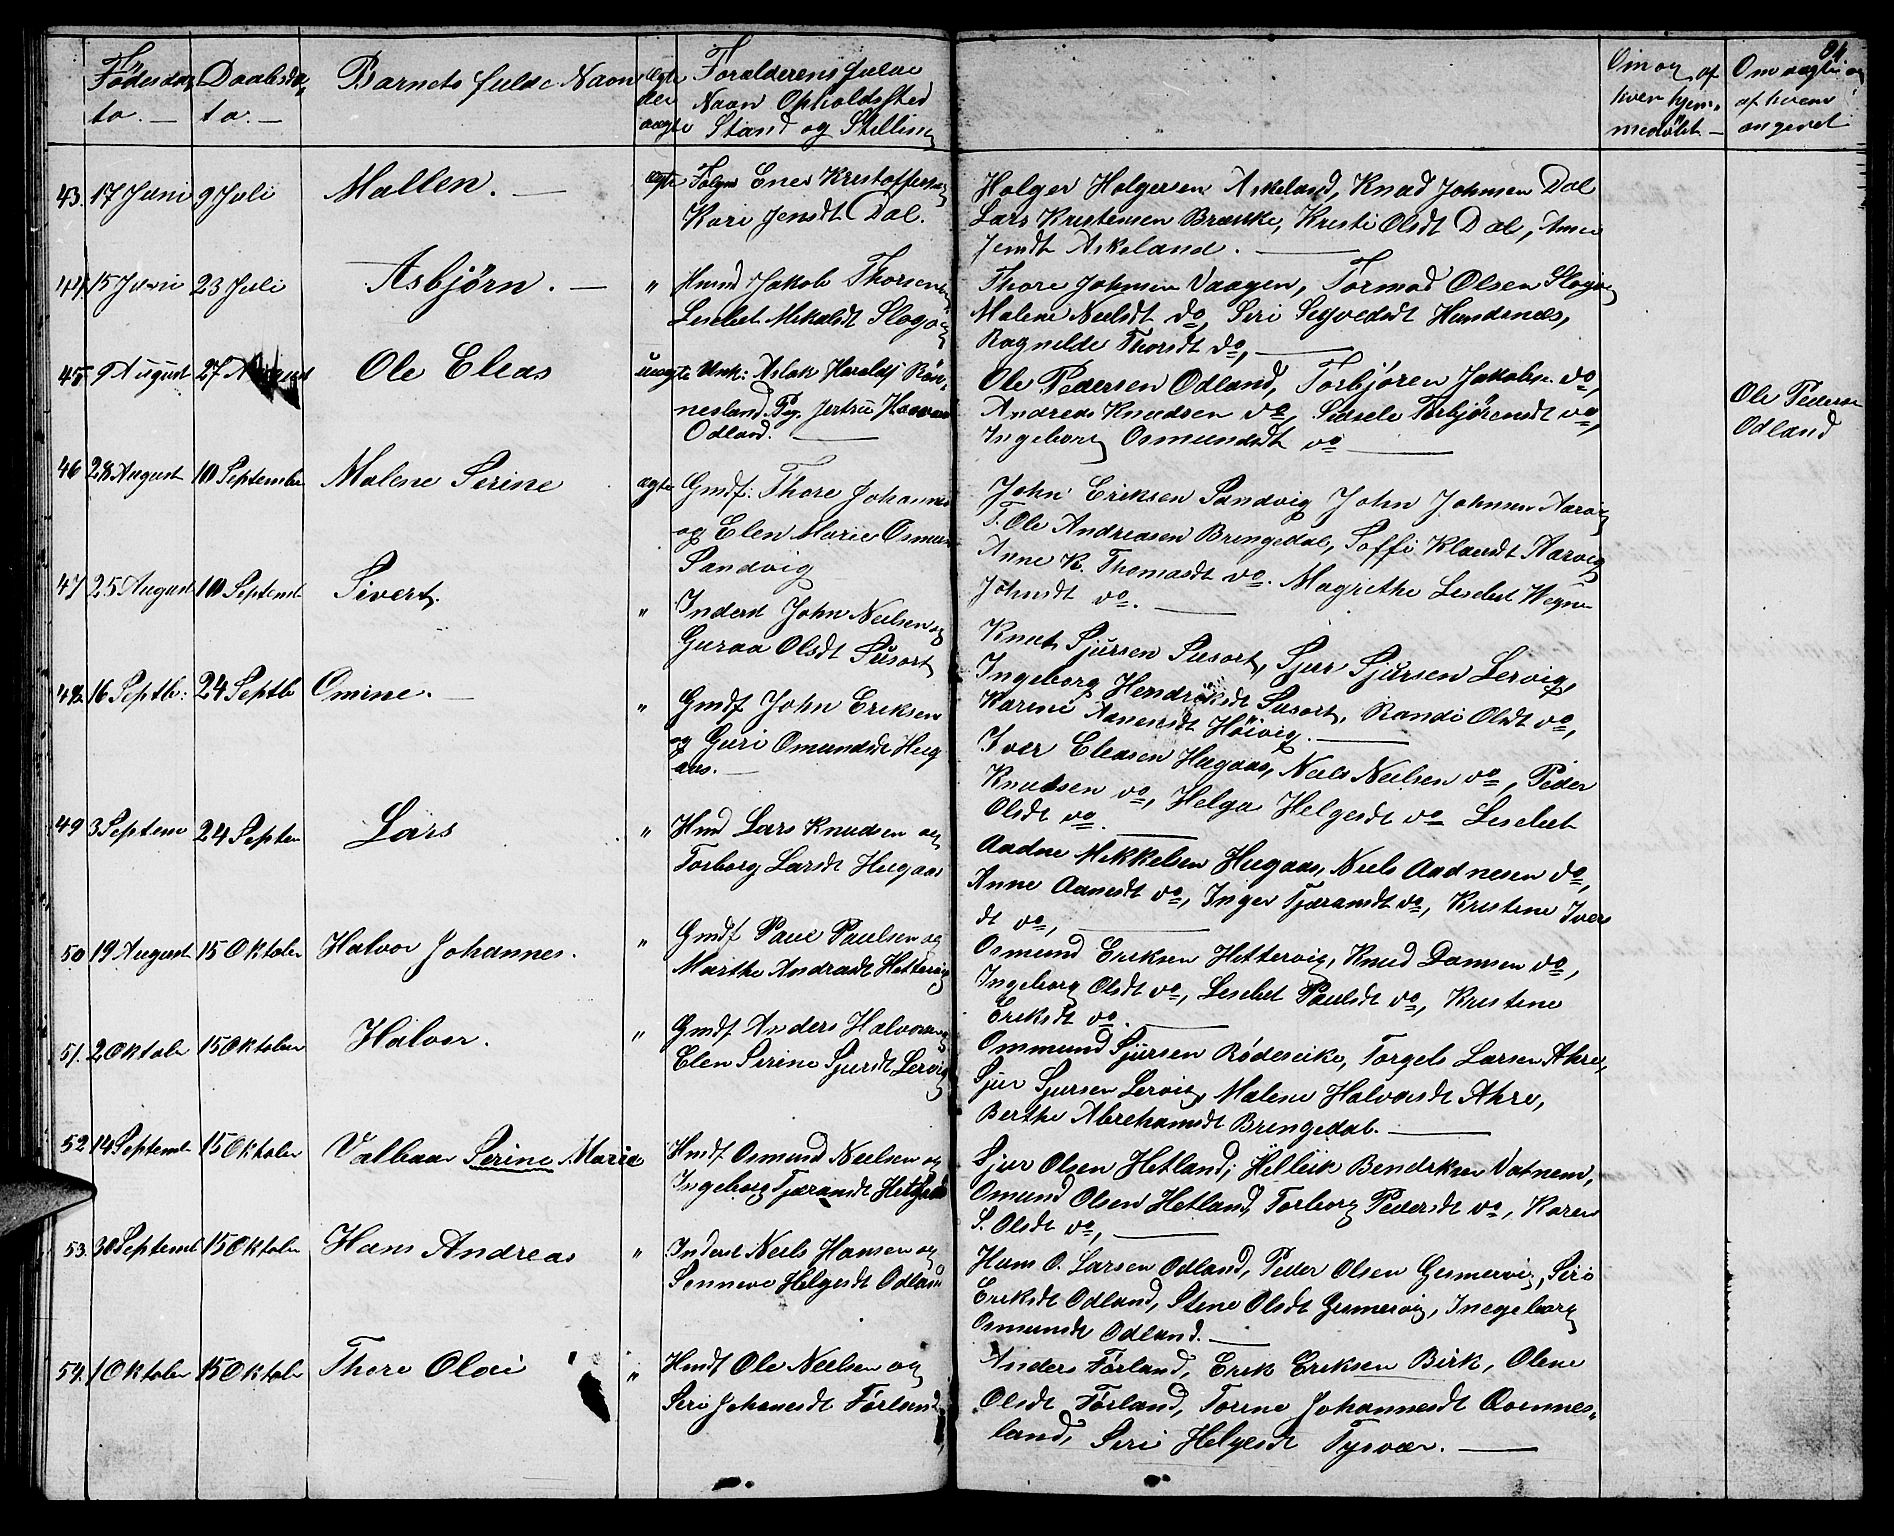 Fødesda Daabsda Barnets fulde Navn ægte Forælderens fulde
to. — to. — eller Navn Opholdssted
uægte Stand og Stilling
Om og af
hven hjem-
medøbt —
Om uægte og
af hvem
angivet
43. 17 Juni 9 Juli Mallen. — ægte Følgm Ener Kristoffersen
Kari Jensdt Dal.
Holger Holgersen Askeland, Knud Johnsen Dal
Lars Kristensen Brække, Kristi Olsdt Dal, Anne
Jensdt Askeland. —
44. 15 Juni 23 Juli Asbjørn. — " Hmd Jakob Thorsen
Lisebet Mikalsdt Slogvig
Thore Johnsen Vaagen, Tormod Olsen Slogvig
Malene Nielsdt do, Siri Segvedsdt Hundsnes,
Ragnilde Thorsdt do, —
45 9 August 27 August Ole Elias uægte Unk: Aslak Haralds Røn-
nesland. Pg. Jertru
Odland. —
Ole Pedersen Odland, Torbjøren Jakobsn do,
Andreas Knudsen do, Sidsele Torbjørensdt do,
Ingeborg Osmundsdt do —
Ole Pederse
Odland
46 28 August 10 September Malene Serine ægte Gmdf: Thore Johannes
og Elen Marie Osmun
Sandvig
John Eriksen Sandvig John Johnsen Aarvig
T. Ole Andreasen Bringedal, Soffi Klausdt Aarvig
Anne K. Thomasdt do. Magrethe Lisebet
Johnsdt do. —
47 25 August 10 Septemb Sivert. " Inderst John Nielsen og
Guraa Olsdt Susort
Knut Sjursen Susort, Sjur Sjursen Lervig,
Ingeborg Hendriksdt Susort, Randi Olsdt do,
Karine Aanensdt Høivig. —
48. 16 Septb: 24 Septb Omine. — " Gmdf John Eriksen
og Guri Omundsdt Hug
aas. —
Iver Eleasen Hugaas, Niels Nielsen do, Peder
Knudsen do, Helga Helgesdt do Lisebet
Olsdt do. —
49 3 Septem 24 Septem Lars " Hmd Lars Knudsen og
Torborg Larsdt Hugaas
Aadne Mikkelsen Hugaas, Niels Aadnesen do,
Anne Aanesdt do, Inger Tjæransdt do, Kristine Ivers
dt do, —
50 19 August 15 Oktober Halvor Johannes. " Gmdf Paul Paulsen og
Marthe Andrasdt Hettervig
Osmund Eriksen Hettervig, Knud Damsen do,
Ingeborg Olsdt do, Lisebet Paulsdt do, Kristine
Eriksdt do. —
51. 2 Oktobr 15 Oktober Halvor. " Gmdf Anders Halvorsen og
Elen Serine Sjursdt Lervig
Ommund Sjursen Rødeseike, Torgels Larsen Ahre,
Sjur Sjursen Lervig, Malene Halvorsdt Ahre,
Berthe Abrehamsdt Bringedal. —
52 14 Septemb 15 Oktober Valbaar Serine Maria Hmdf Osmund Nielsen og
Ingeborg Tjæransdt Hetland
Sjur Olsen Hetland, Hellik Bendiksen Vatnem,
Omund Olsen Hetland, Torborg Pedersdt do, Karen
S. Olsdt do, —
53. 30 Septemb 15 Oktober Hans Andreas " Inderst Niels Hansen og
Sønneve Helgesdt Odland
Hans O. Larsen Odland, Peder Olsen Gismervig, Siri
Eriksdt Odland, Stine Olsdt Gismervig, Inegeborg
Osmundsdt Odland. —
54. 1 Oktober 15 Oktober Thore Olai " Hmdf Ole Nielsen og
Siri Johanesdt Førland
Anders Førland, Erik Eriksen Birk, Oline
Olsdt Førland, Torine Johannesdt Qvinnes-
land, Siri Helgesdt Tysvær. —